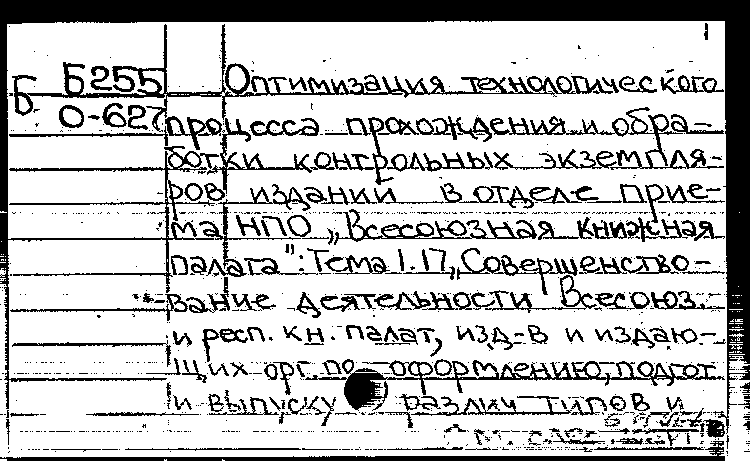 Б Б255 Оптимизация технологического
О-627 процесса прохождения и обра-
ботки контрольных экземпля-
ров изданий в отделе прие-
ма НПО „Всесоюзная книжная
палата": Тема 1.17 „Совершенство-
вание деятельности Всесоюз.
и респ. кн. палат, изд-в и издаю-
щих орг. по оформлению, подгот
и выпуску различ типов и
См. след.